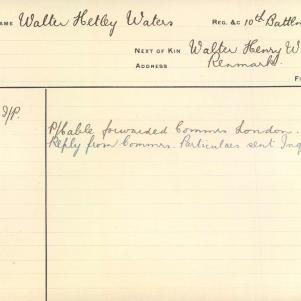 NAME Walter Hetley Waters REG. &C 10th Battln
NEXT OF KIN Walter Henry W
ADDRESS Renmark.
F
I/P.
P/Cable forwarded Commrs London.
Reply from Commrs. Particulars sent Inq